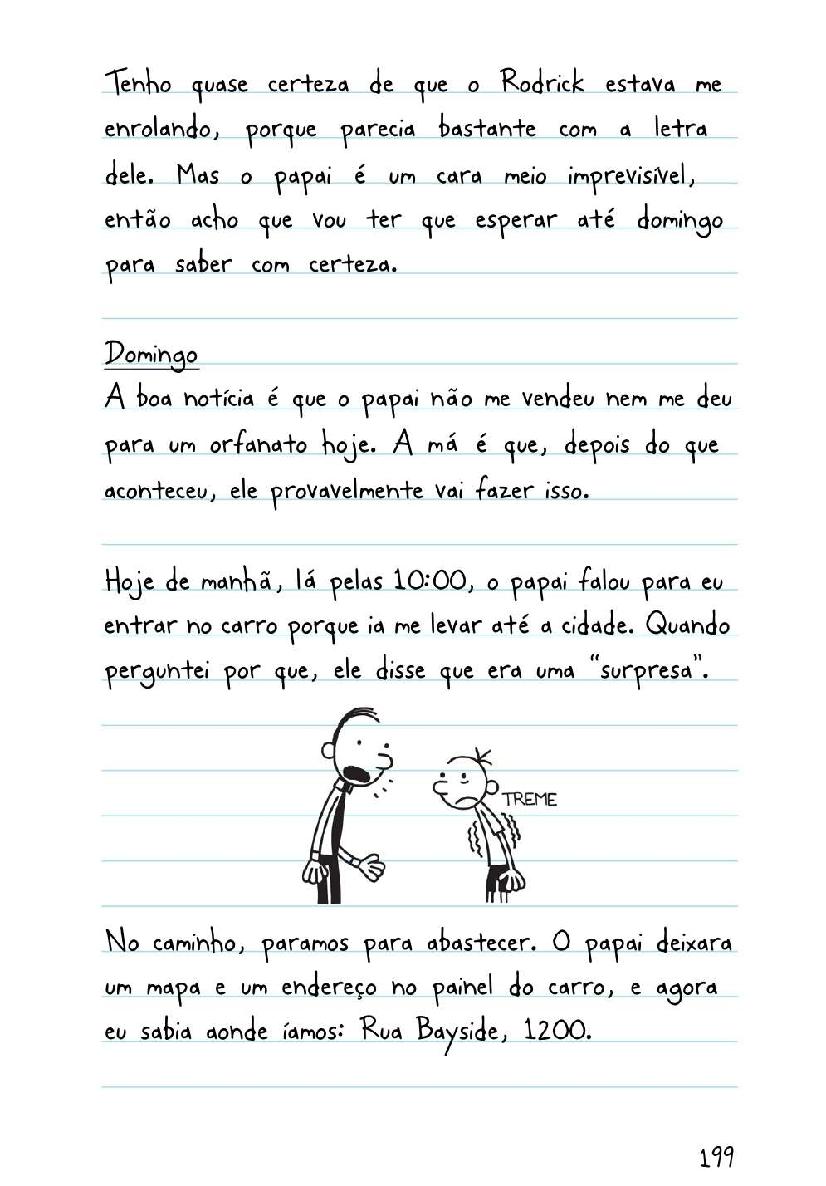 Tenho quase certeza de que o Rodrick estava me
enrolando, porque parecia bastante com a letra
dele. Mas o papai é um cara meio imprevisível,
então acho que vou ter que esperar até domingo
para saber com certeza.
Domingo
A boa notícia é que o papai não me vendeu nem me deu
para um orfanato hoje. A má é que, depois do que
aconteceu, ele provavelmente vai fazer isso.
Hoje de manhã, lá pelas 10:00, o papai falou para eu
entrar no carro porque ia me levar até a cidade. Quando
perguntei por que, ele disse que era uma "surpresa".
TREME
No caminho, paramos para abastecer. O papai deixara
um mapa e um endereço no painel do carro, e agora
eu sabia aonde íamos: Rua Bayside, 1200.
199